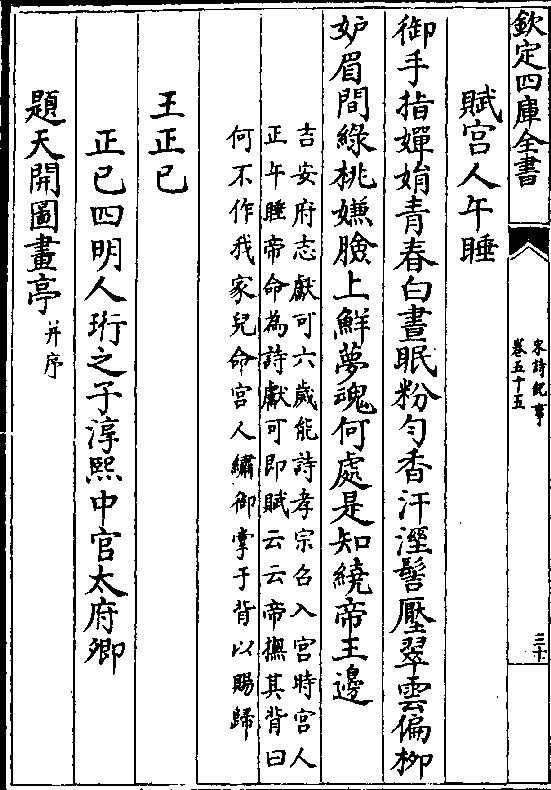 欽定四庫全書
宋詩紀事
卷五十五
三十
賦宫人午睡
御手指嬋娟青春白晝眠粉匀香汗溼髻壓翠雲偏桺
妒眉間綠桃嫌臉上鮮夢魂何處是知繞帝王邊
吉安府志獻可六歲能詩孝宗召入宫時宫人
正午睡帝命為詩獻可即賦云云帝撫其背曰
何不作我家兒命宫人繡御掌于背以賜歸
王正已
正已四明人珩之子淳熙中官太府卿
題天開圖畫亭并序